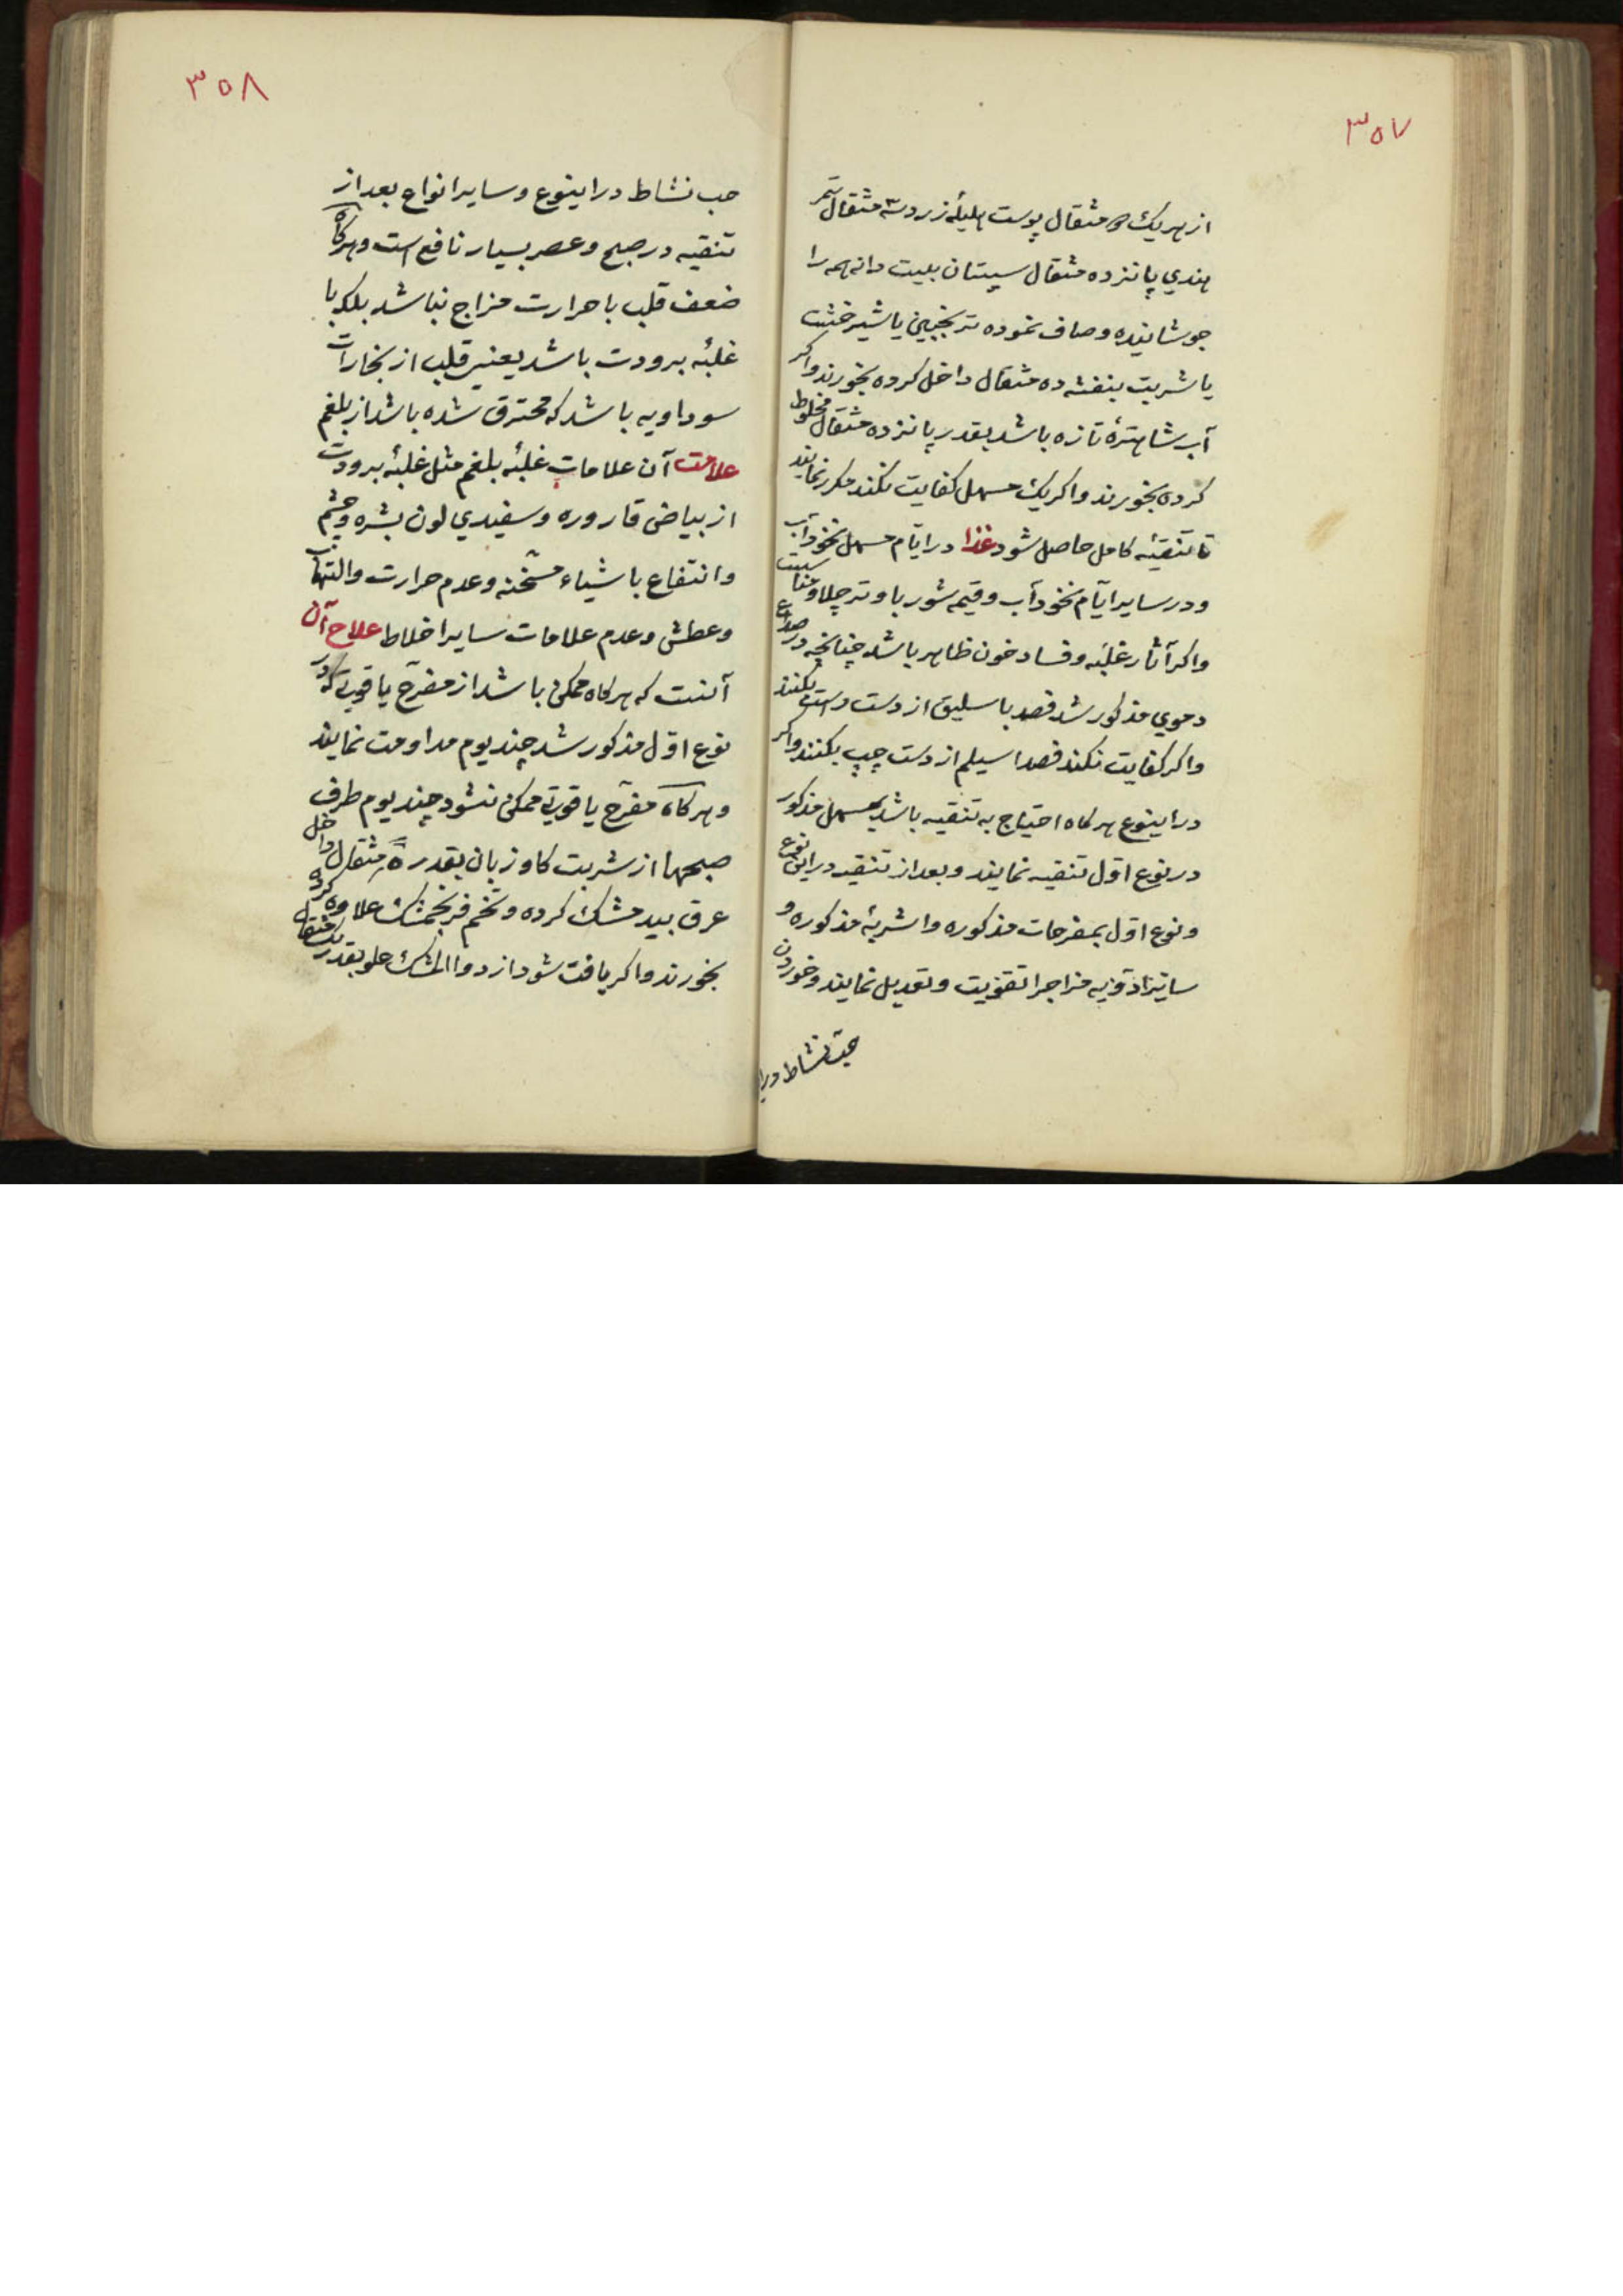 ۳۵۷
از هریک ۵ مثقال پوست هلیلهٔ زرد سه مثقال تمر
هندي پانزده مثقال سپستان بیست دانه همه را
جوشانیده وصاف نموده ترنجبین یا شیرخشت
یا شربت بنفشه ده مثقال داخل کرده بخورند واکر
آب شاهترهٔ تازه باشد بقدر پانزده مثقال مخلوط
کرده بخورند واکر یک مسهل کفایت نکند مکرر نمایند
تا تنقیهٔ کامل حاصل شود غذا در ایّام مسهل نخودآب
ودر سایر ایّام نخودآب وقیمه شوربا وترچلاو مناسبست
واکر آثار غلبه وفساد خون ظاهر باشد چنانچه در صداع
دموي مذکور شد فصد باسلیق از دست راست بکنند
واکر کفایت نکند فصد اسیلم از دست چپ بکنند واکر
در اینوع هرکاه احتیاج به تنقیه باشد بمسهل مذکور
در نوع اوّل تنقیه نمایند وبعد از تنقیه در این نوع
ونوع اوّل بمفرحات مذکوره واشربهٔ مذکوره و
سایر ادویه مزاجرا تقویت وتعدیل نمایند وخوردن
حبّ نشاط درا
۳۵۸
حب نشاط در اینوع وسایر انواع بعد از
تنقیه در صبح وعصر بسیار نافع است وهرکاه
ضعف قلب با حرارت مزاج نباشد بلکه با
غلبهٔ برودت باشد یعنی قلب از بخارات
سوداویه باشد که محترق شده باشد از بلغم
علامت آن علامات غلبهٔ بلغم مثل غلبهٔ برودت
از بیاض قاروره وسفیدي لون بشره وچشم
وانتفاع باشیاء مسخّنه وعدم حرارت والتهاب
وعطش وعدم علامات سایر اخلاط علاج آن
آنست که هرکاه ممکن باشد از مفرّح یاقوتی که در
نوع اوّل مذکور شد چند یوم مداومت نمایند
وهرکاه مفرّح یاقوتی ممکن نشود چند یوم طرف
صبحها از شربت کاوزبان بقدر ۵ مثقال داخل
عرق بیدمشک کرده وتخم فرنجمشک علاوه کرده
بخورند واکر یافت شود از دواالمشک حلو بقدر یکمثقال